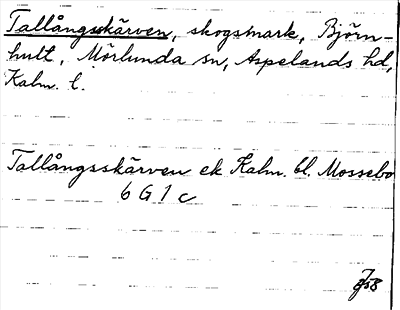 Tallångsskärven, skogsmark, Björn-
hult, Mörlunda sn, Aspelands hd,
Kalm. l.
Tallångsskärven ek Kalm. bl. Mossebo
6 G 1 c